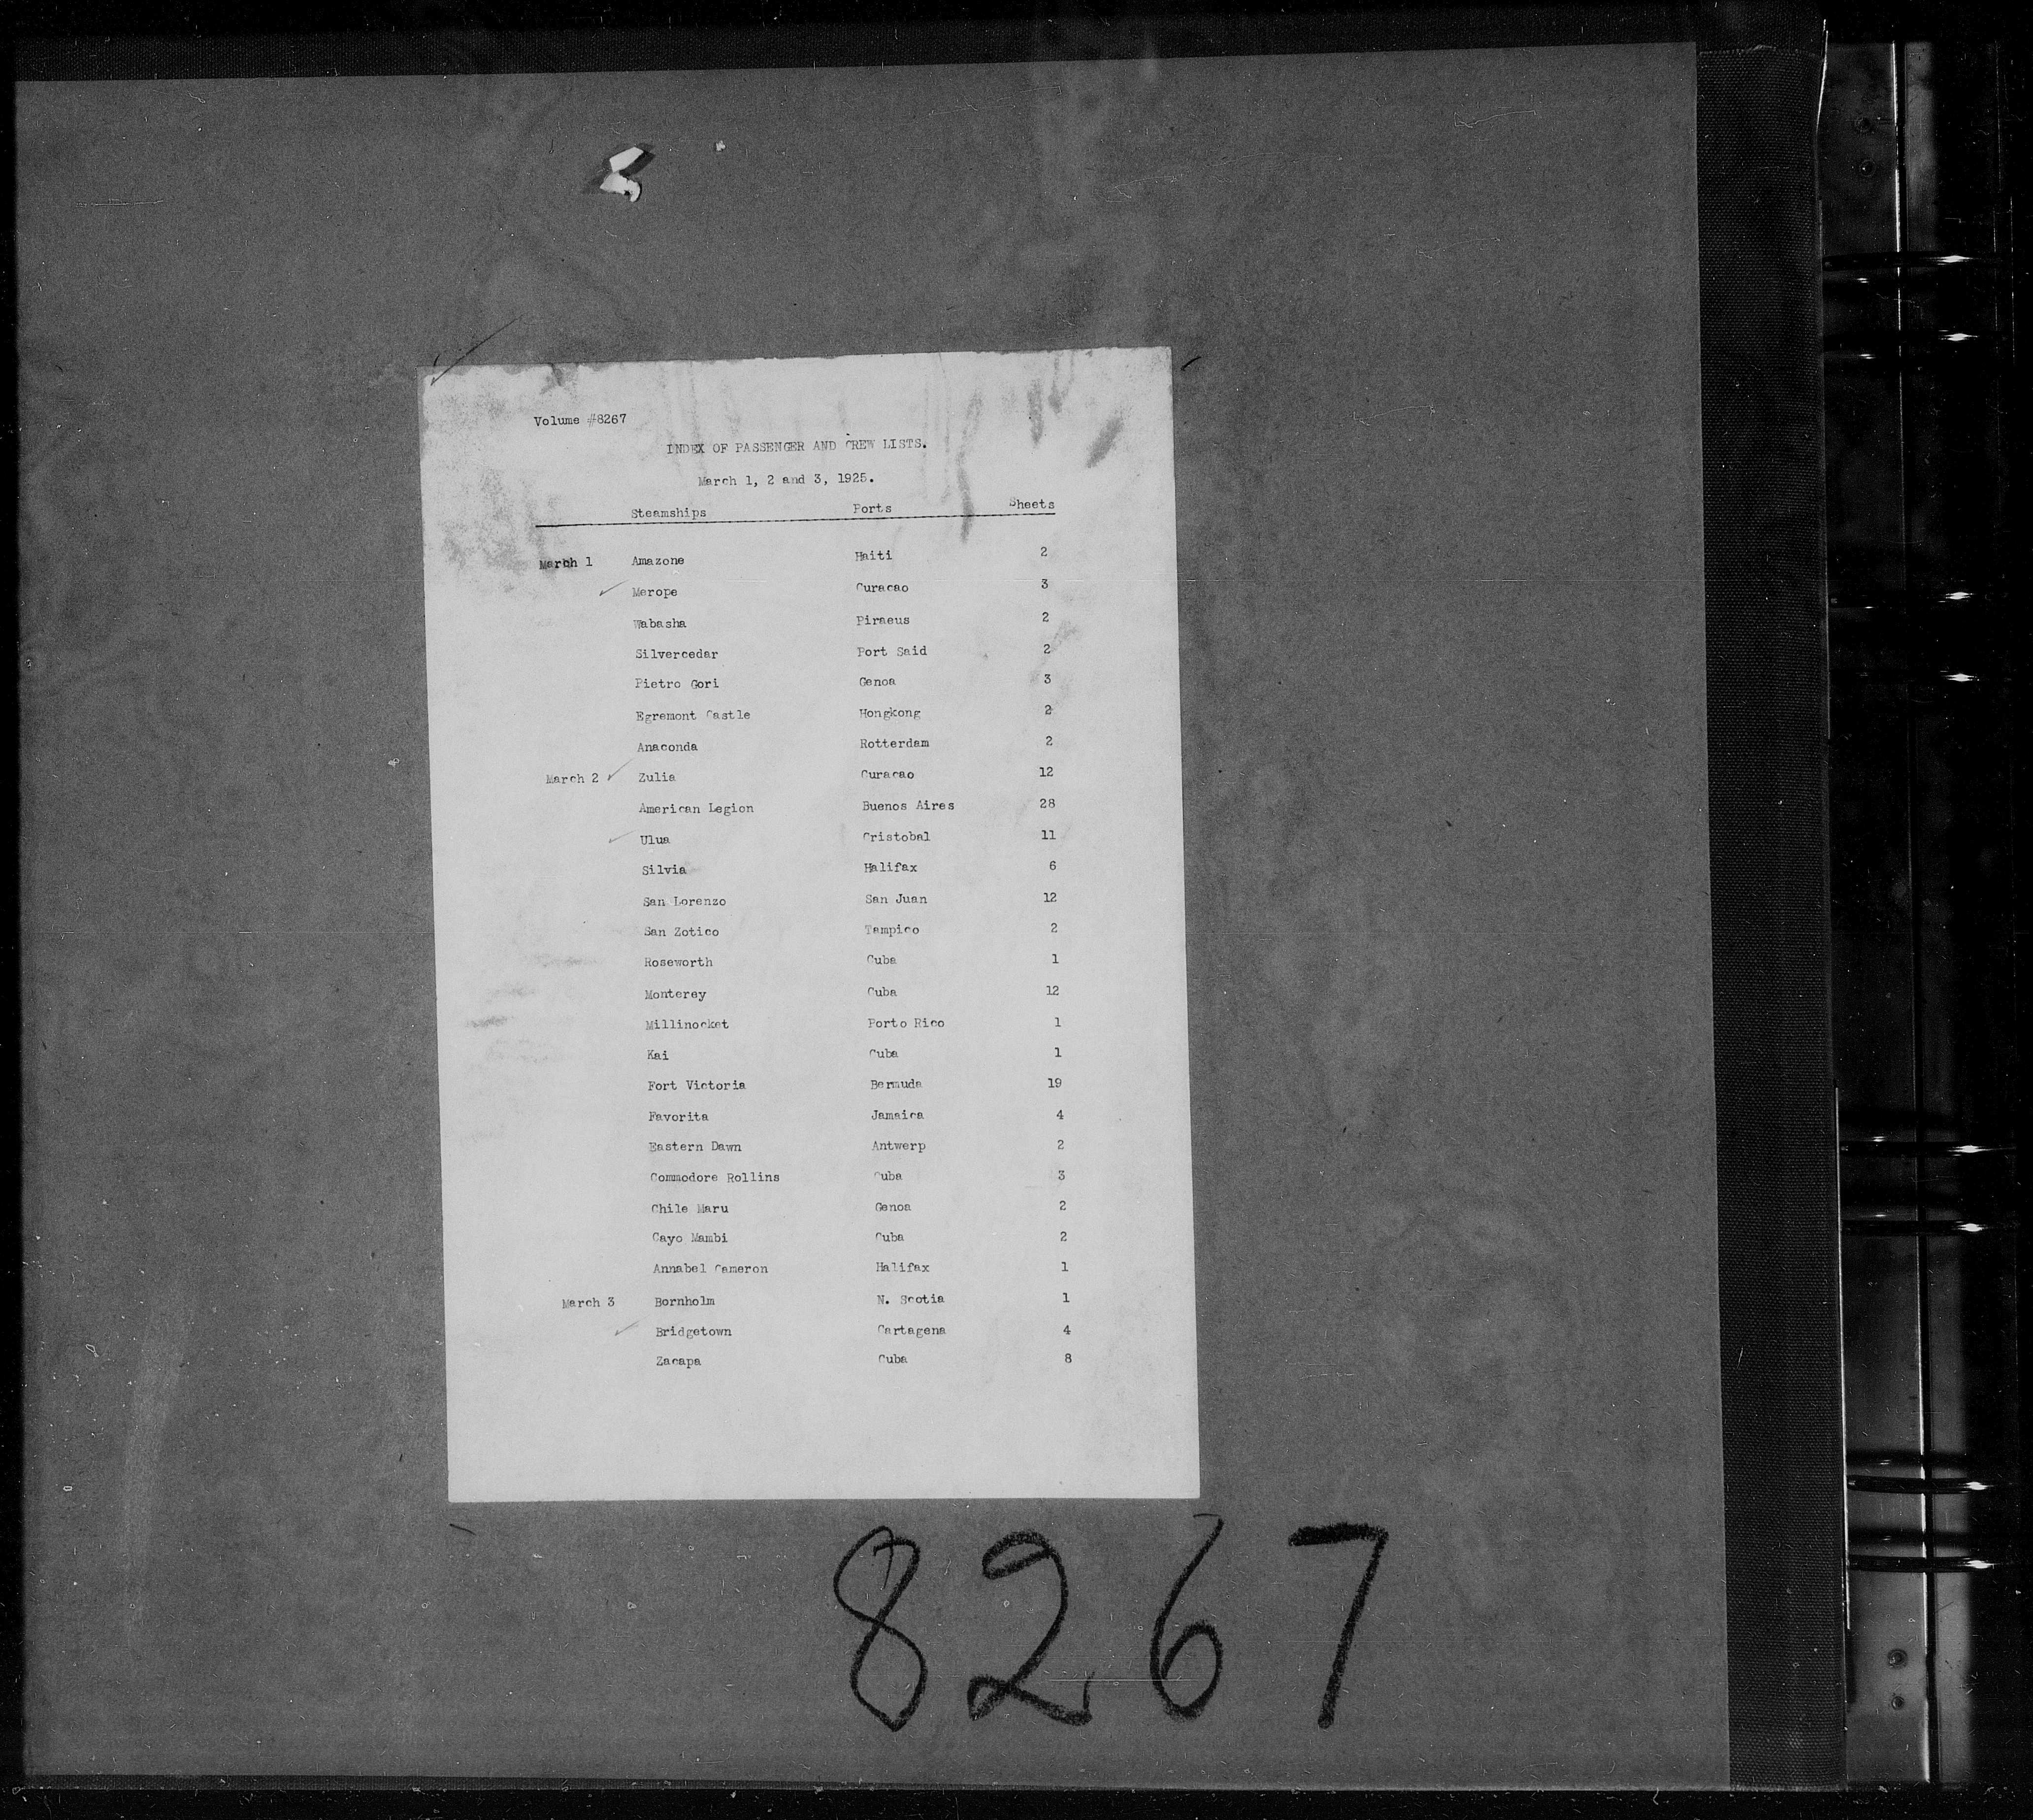 Volume #8267
INDEX OF PASSENGER AND CREW LISTS.
March 1, 2 and 3, 1925.
Steamships Ports Sheets
March 1 Amazone Haiti 2
Merope Curacao 3
Wabasha Piraeus 2
Silvercedar Port Said 2
Pietro Gori Genoa 3
Egremont Castle Hongkong 2
Anaconda Rotterdam 2
March 2 Zulia Curacao 12
American Legion Buenos Aires 28
Ulua Cristobal 11
Silvia Halifax 6
San Lorenzo San Juan 12
San Zotico Tampico 2
Roseworth Cuba 1
Monterey Cuba 12
Millinocket Porto Rico 1
Kai Cuba 1
Fort Victoria Bermuda 19
Favorita Jamaica 4
Eastern Dawn Antwerp 2
Commodore Rollins Cuba 3
Chile Maru Genoa 2
Cayo Mambi Cuba 2
Annabel Cameron Halifax 1
March 3 Bornholm N. Scotia 1
Bridgetown Cartagena 4
Zacapa Cuba 8
8267